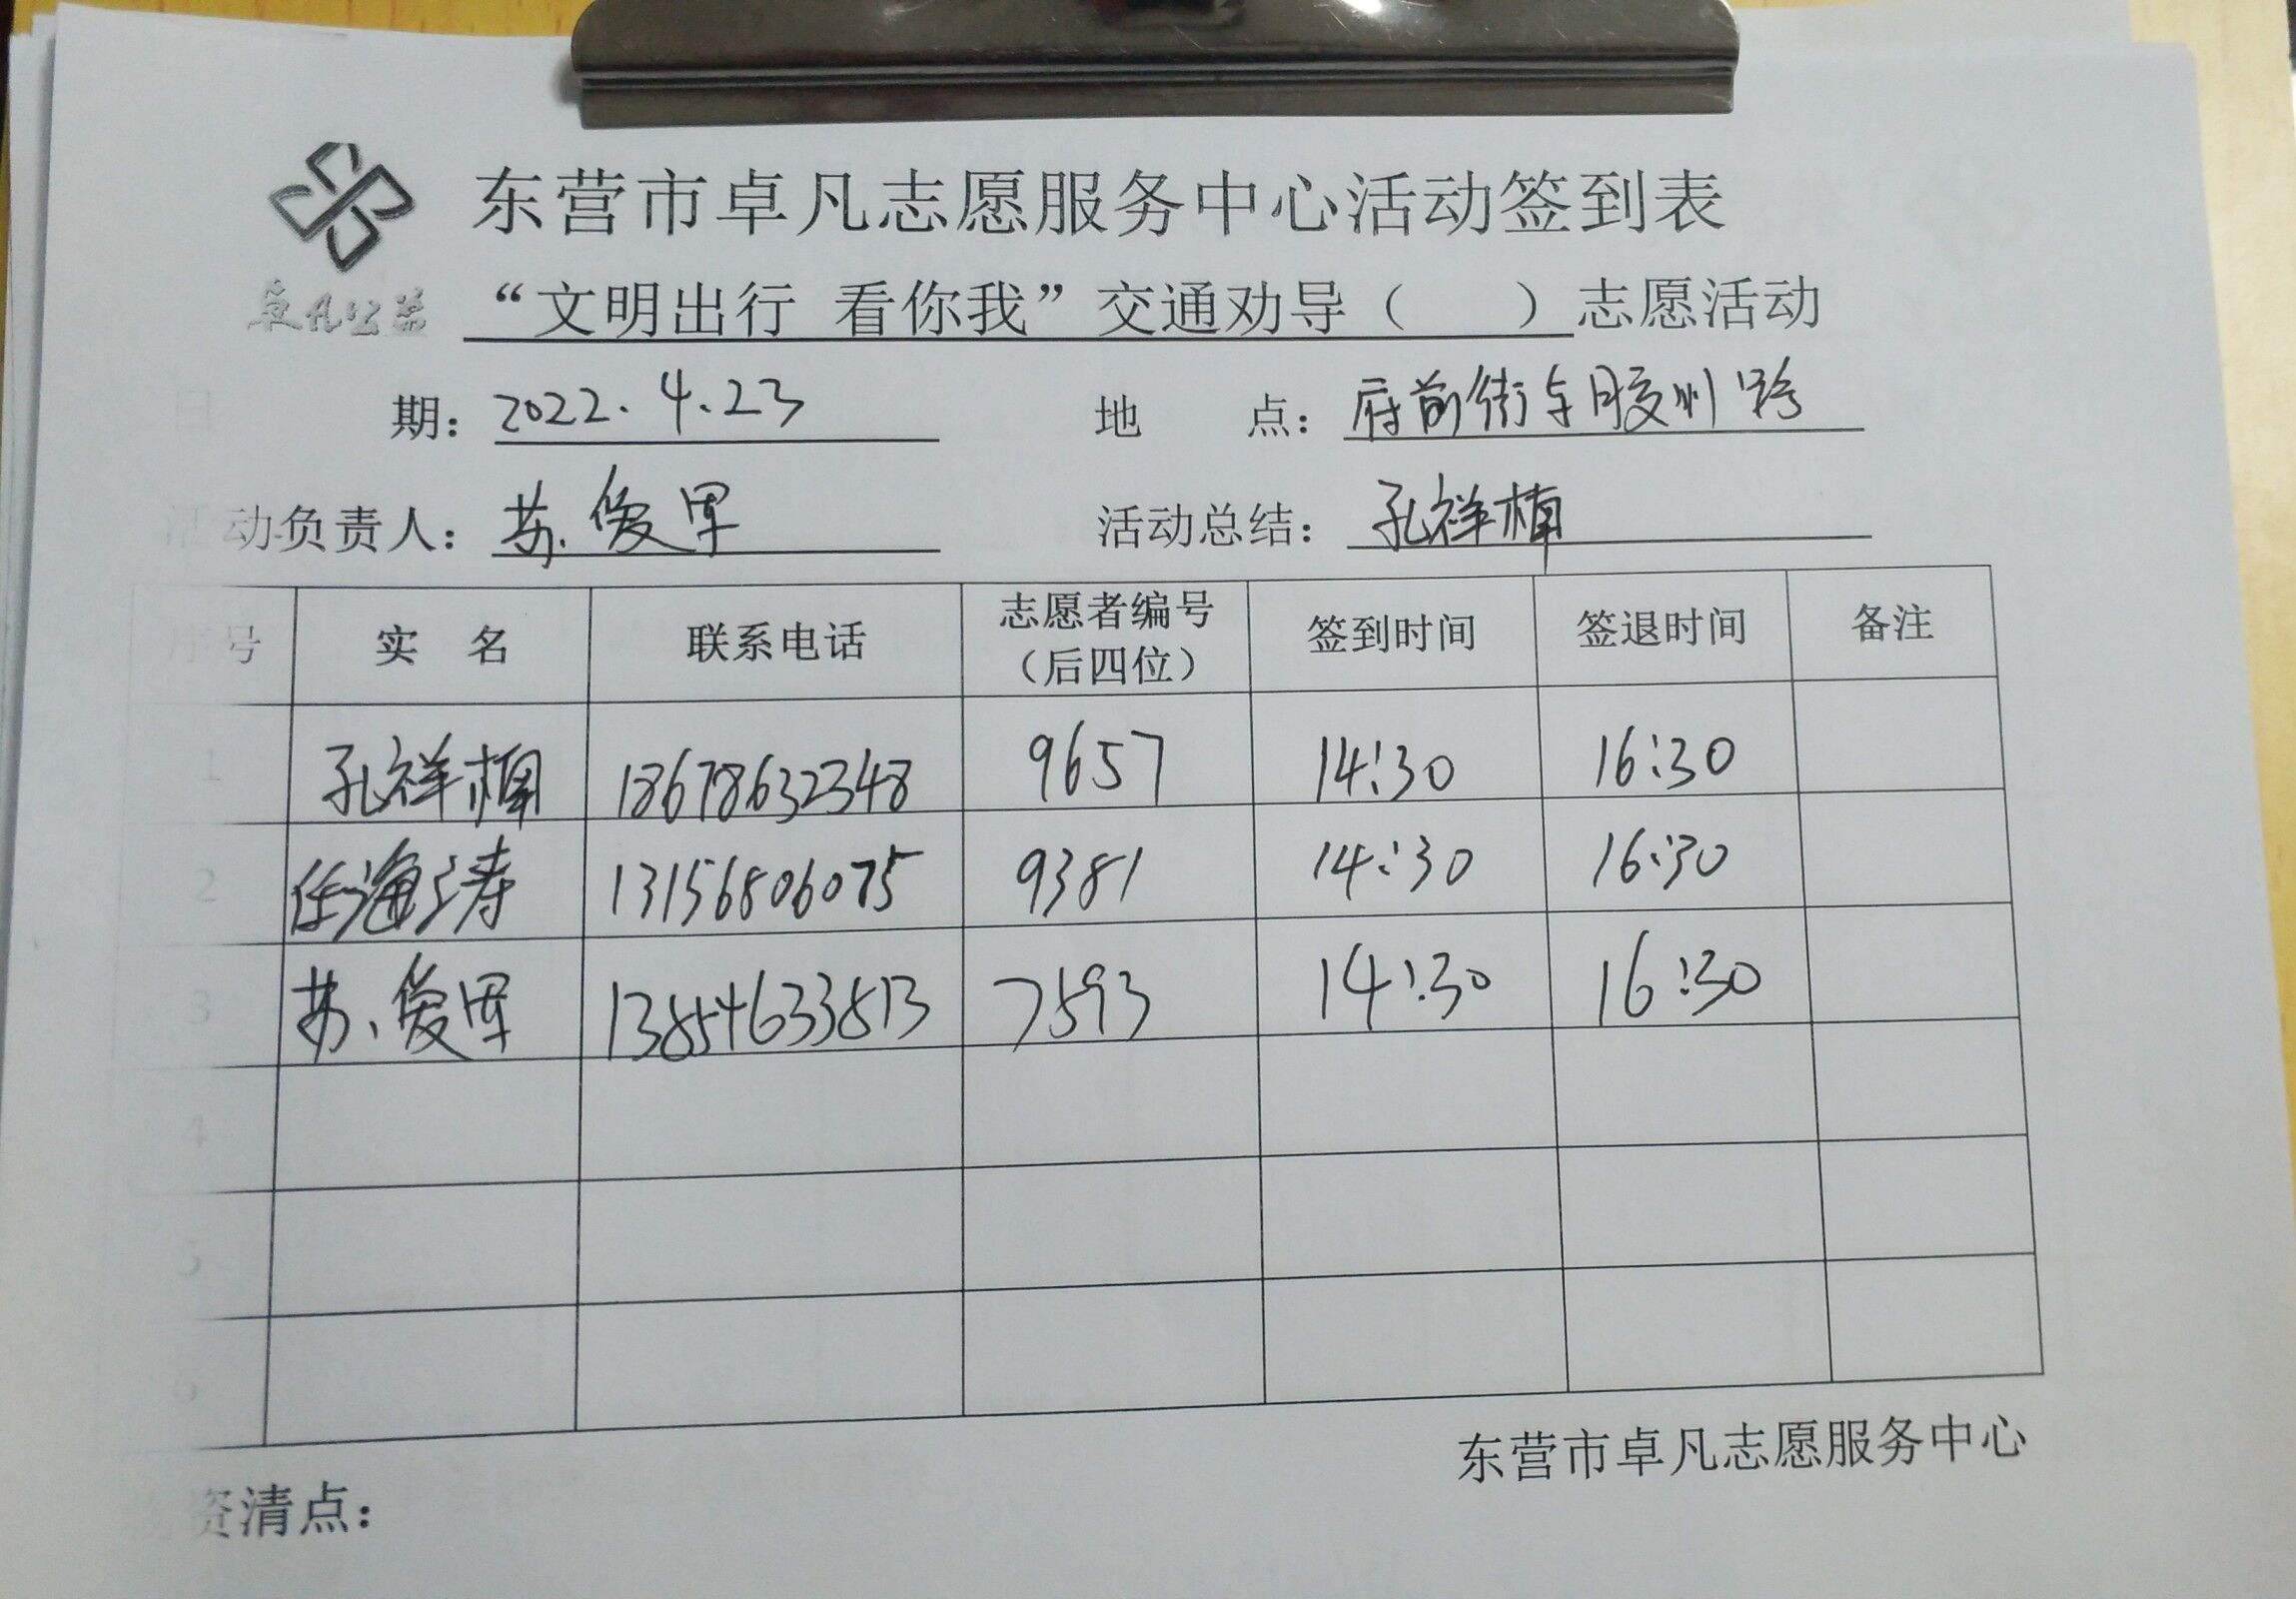 东营市卓凡志愿服务中心活动签到表
卓凡公益
“文明出行 看你我”交通劝导（ ）志愿活动
日 期：2022.4.23 地 点：府前街与胶州路
活动负责人：苏俊军 活动总结：孔祥楠
序号 实 名 联系电话 志愿者编号（后四位） 签到时间 签退时间 备注
1 孔祥楠 18678632348 9657 14:30 16:30
2 任海涛 13156806075 9381 14:30 16:30
3 苏俊军 13854633513 7593 14:30 16:30
4
5
6
东营市卓凡志愿服务中心
物资清点：